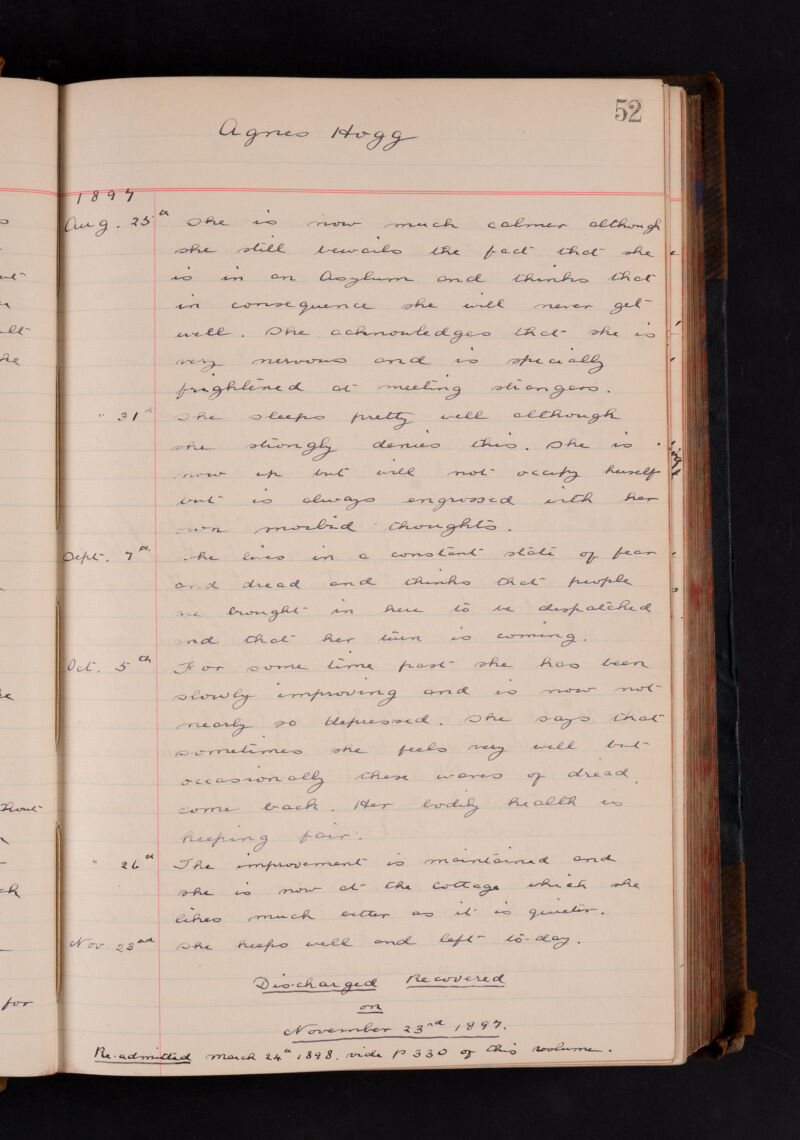 52
Agnes Hogg
1897
Aug. 25th She is now much calmer although
she still bewails the fact that she
is in an Asylum and thinks that
in consequence she will never get
well. She acknowledges that she is
very nervous and is specially
frightened at meeting strangers.
" 31st She sleeps pretty well although
she strongly denies this. She is
now up but will not occupy herself
but is always engrossed with her
own morbid thoughts.
Sept. 7th She lives in a constant state of fear
and dread and thinks that people
are brought in here to be despatched
and that her turn is coming.
Oct. 5th For some time past she has been
slowly improving and is now not
nearly so depressed. She says that
sometimes she feels very well but
occasionally these waves of dread
come back. Her bodily health is
keeping fair.
" 26th The improvement is maintained and
she is now at the Cottage which she
likes much better as it is quieter.
Nov. 23rd She keeps well and left to-day.
Discharged Recovered
on
November 23rd 1897.
Re-admitted March 24th 1898. vide p 330 of this volume.